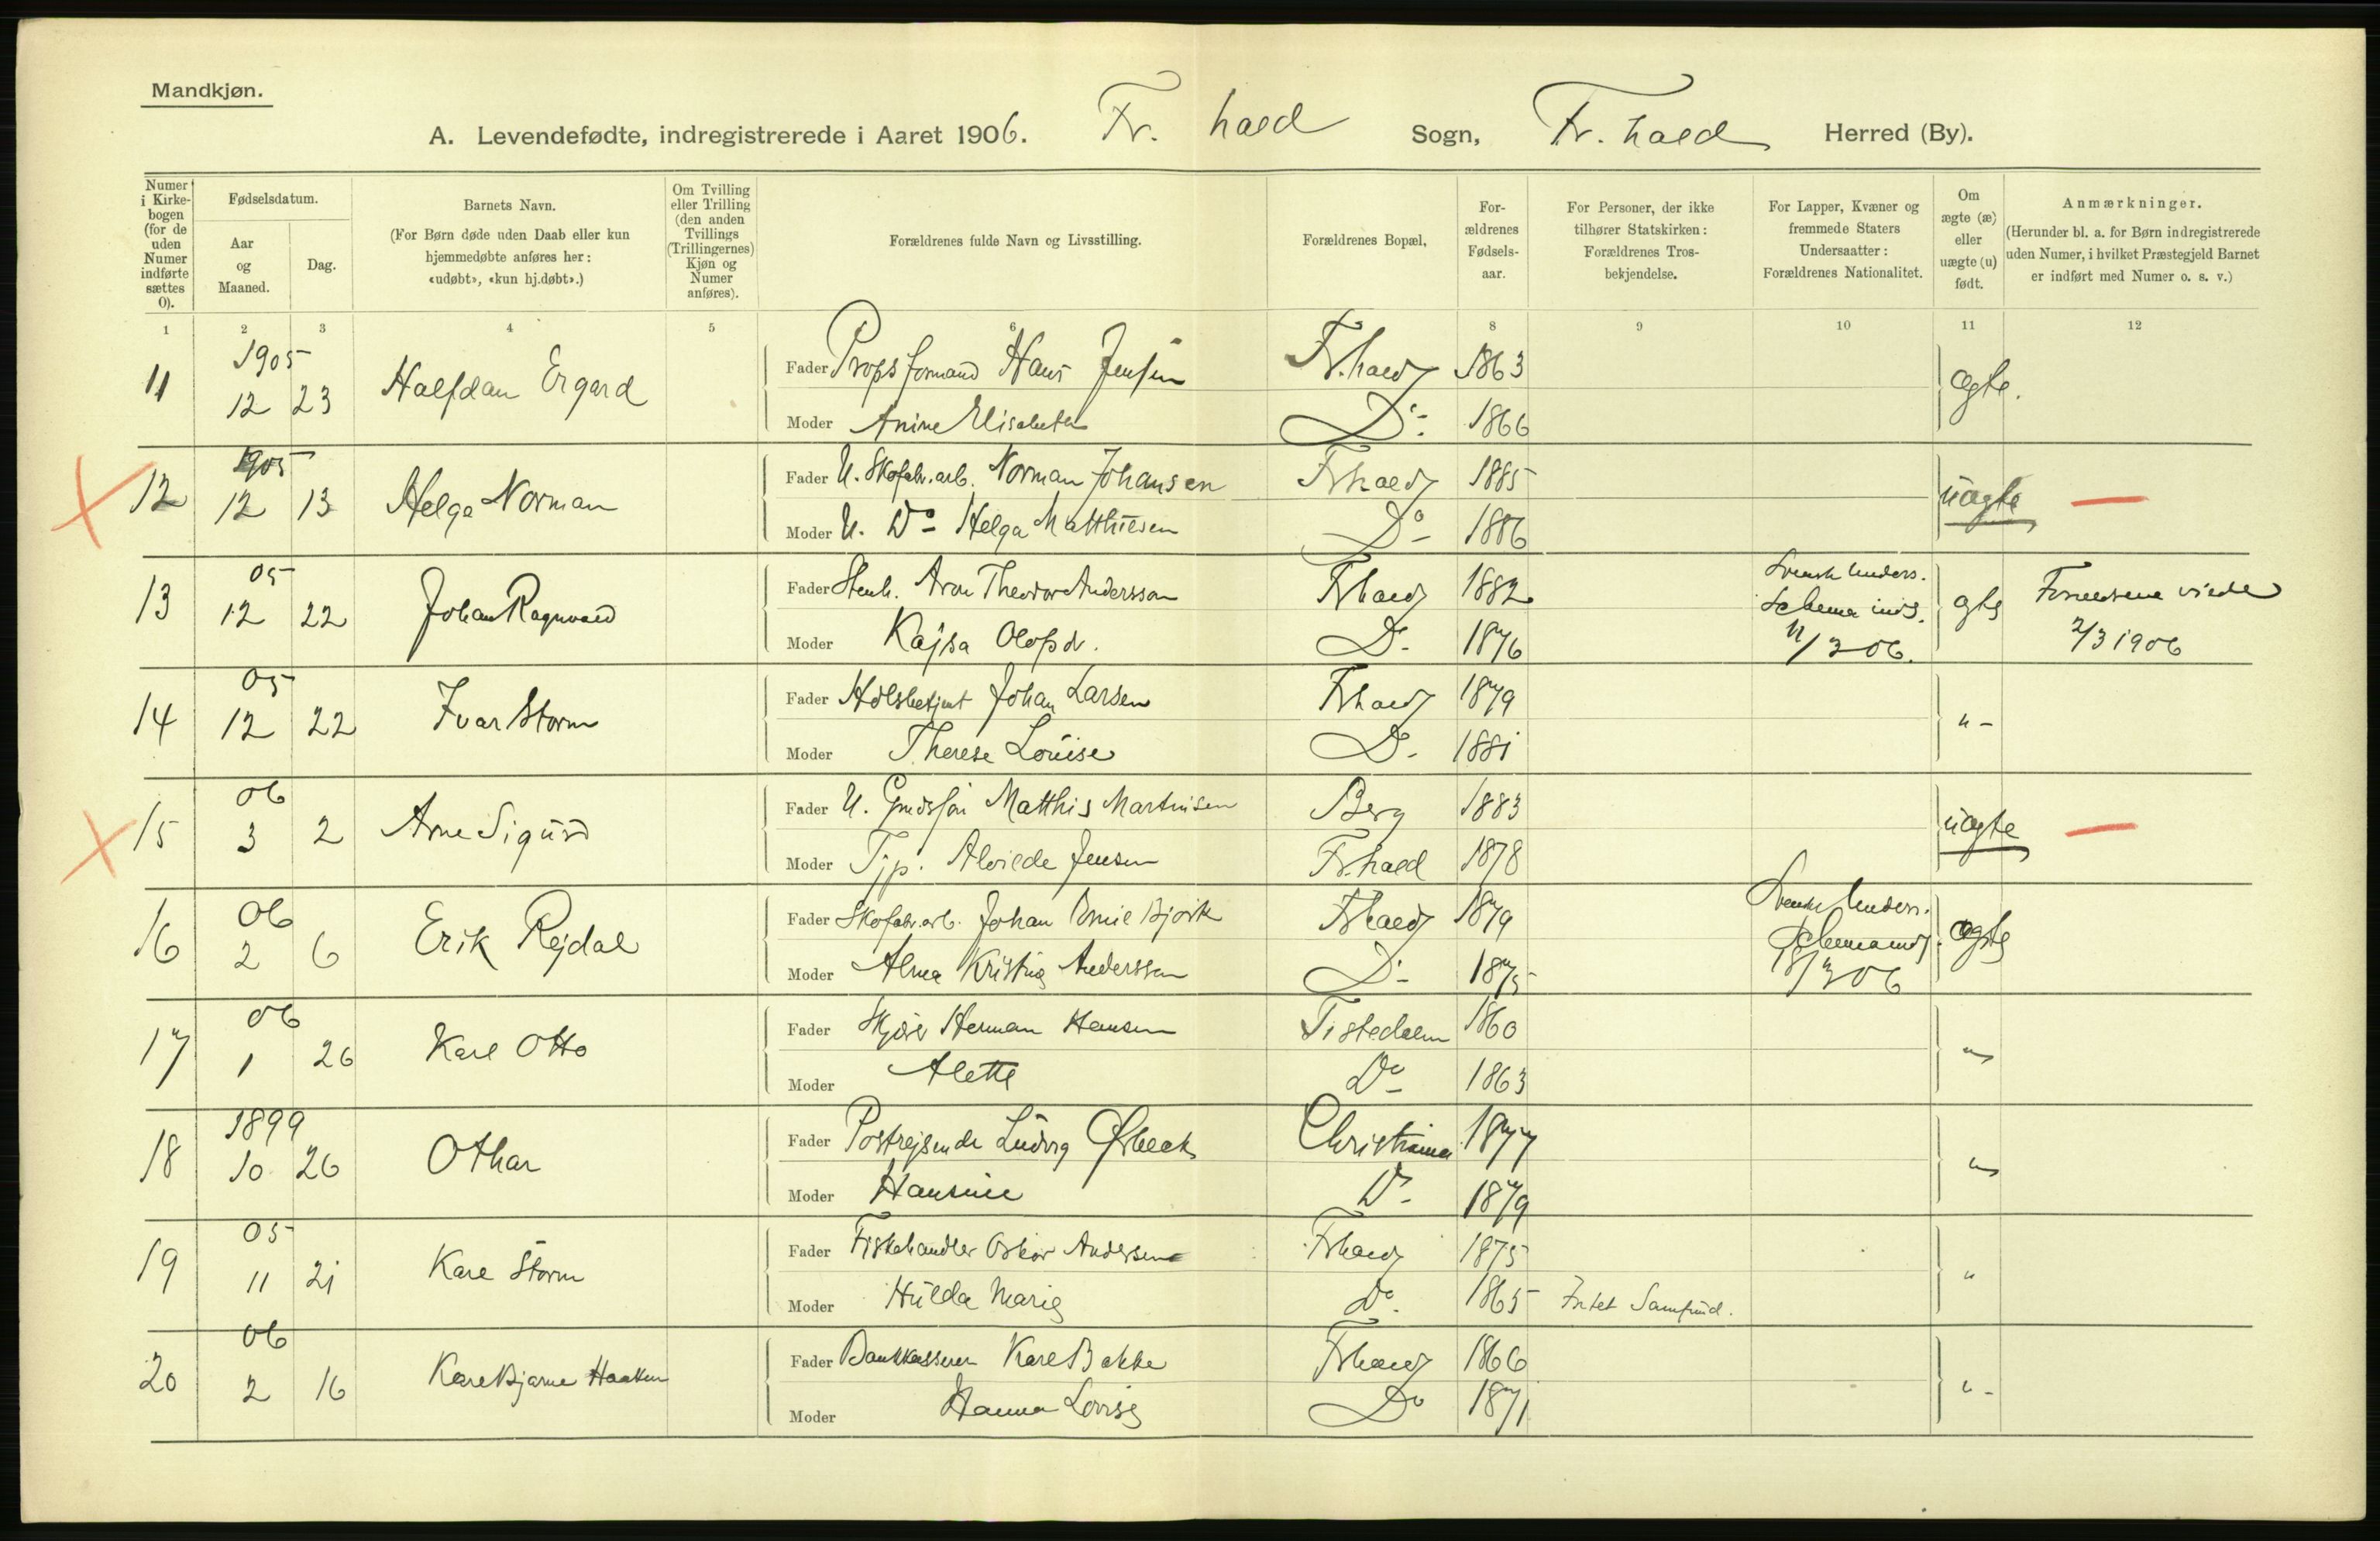 Mandkjøn.
A. Levendefødte, indregistrerede i Aaret 1906. Fr. hald Sogn, Fr. hald Herred (By).
Numer i Kirke-bogen (for de uden Numer indførte sættes 0).
Fødselsdatum.
Aar og Maaned.
Dag.
Barnets Navn.
(For Børn døde uden Daab eller kun hjemmedøbte anføres her: «udøbt», «kun hj.døbt».)
Om Tvilling eller Trilling (den anden Tvillings (Trillingernes) Kjøn og Numer anføres).
Forældrenes fulde Navn og Livsstilling.
Forældrenes Bopæl,
For-ældrenes Fødsels-aar.
For Personer, der ikke tilhører Statskirken: Forældrenes Tros-bekjendelse.
For Lapper, Kvæner og fremmede Staters Undersaatter: Forældrenes Nationalitet.
Om ægte (æ) eller uægte (u) født.
Anmærkninger.
(Herunder bl. a. for Børn indregistrerede uden Numer, i hvilket Præstegjeld Barnet er indført med Numer o. s. v.)
1 2 3 4 5 6 8 9 10 11 12
11 1905 12 23 Halfdan Ergard Fader Propsformand Hans Jensen Fr.hald 1863 ægte.
Moder Anine Elisabeth Do- 1866
12 1905 12 13 Helge Norman Fader U. Skofabr.arb. Norman Johansen Frhald 1885 uægte —
Moder U. Do- Helga Matthiesen Do- 1886
13 05 12 22 Johan Ragnvald Fader Stenh. Aron Theodor Andersson Frhald 1882 Svensk Unders. Schema inds. 11/3 06. ægte Forældrene viede 2/3 1906
Moder Kajsa Olofsdr. Do- 1876
14 05 12 22 Ivar Storm Fader Johan Larsen Frhald 1879 "-
Moder Therese Louise Do- 1881
15 06 3 2 Arne Sigurd Fader U. Matthis Martinsen Berg 1883 uægte —
Moder Tjp. Alvilde Jensen Fr.hald 1878
16 06 2 6 Erik Rejdal Fader Skofabr.arb. Johan Emil Bjørk Frhald 1879 Svensk Unders. Schema inds. 18/3 06 ægte
Moder Alma Kristina Anderssen Do- 1875
17 06 1 26 Karl Otto Fader Herman Hansen Tistedalen 1860 "
Moder Alette Do- 1863
18 1899 10 26 Othar Fader Postrejsende Ludvig Ørbeck Christiania 1877 "
Moder Hansine Do- 1879
19 05 11 21 Kare Storm Fader Fiskehandler Oskar Andersen Frhald 1875 "
Moder Hulda Marie Do- 1865 Intet Samfund.
20 06 2 16 Kare Bjarne Haakon Fader Bankkasserer Karl Bakke Frhald 1866 "-
Moder Hanna Lovise Do 1871